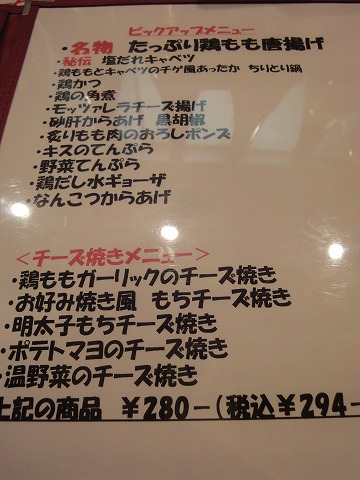 ピックアップメニュー
・名物 たっぷり鶏もも唐揚げ
・秘伝 塩だれキャベツ
・鶏ももとキャベツのチゲ風あったか ちりとり鍋
・鶏かつ
・鶏の角煮
・モッツァレラチーズ揚げ
・砂肝からあげ 黒胡椒
・炙りもも肉のおろしポンズ
・キスのてんぷら
・野菜てんぷら
・鶏だし水ギョーザ
・なんこつからあげ
＜チーズ焼きメニュー＞
・鶏ももガーリックのチーズ焼き
・お好み焼き風 もちチーズ焼き
・明太子もちチーズ焼き
・ポテトマヨのチーズ焼き
・温野菜のチーズ焼き
上記の商品 ￥280-(税込￥294-